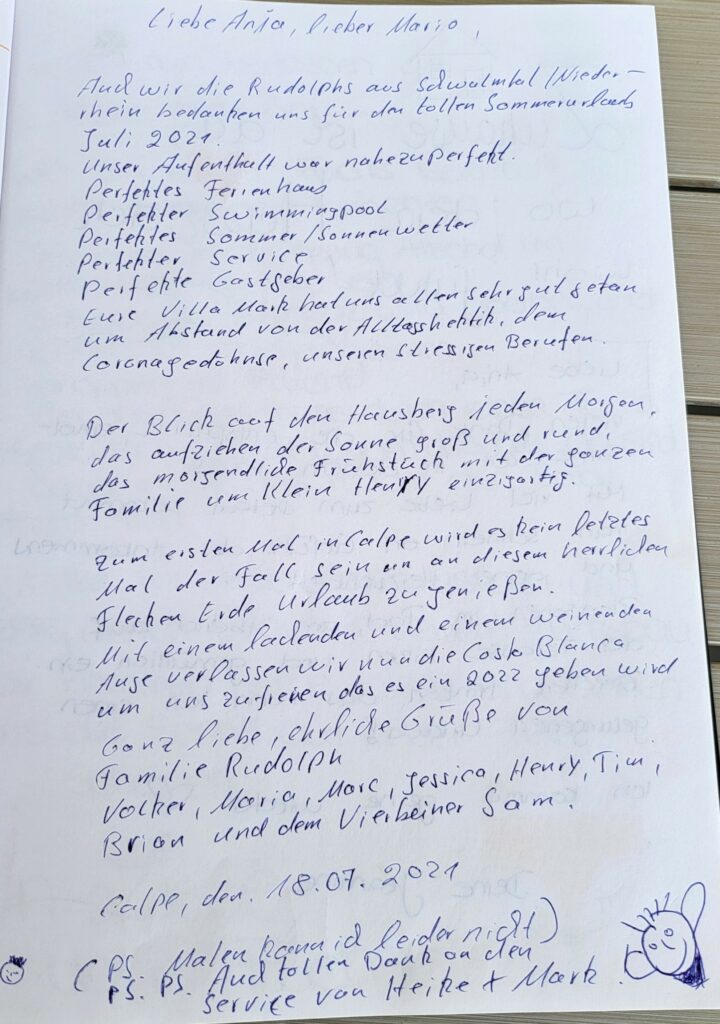 Liebe Anja, lieber Mario,
Auch wir die Rudolphs aus Schwalmtal/Nieder-
rhein bedanken uns für den tollen Sommerurlaub
Juli 2021.
Unser Aufenthalt war nahezu perfekt.
Perfektes Ferienhaus
Perfekter Swimmingpool
Perfektes Sommer/Sonnenwetter
Perfekter Service
Perfekte Gastgeber
Eure Villa Mark hat uns allen sehr gut getan
um Abstand von der Alltagshektik, dem
Coronagedöhnse, unseren stressigen Berufen.
Der Blick auf den Hausberg jeden Morgen,
das aufziehen der Sonne groß und rund,
das morgendliche Frühstück mit der ganzen
Familie um Klein Henry einzigartig.
Zum ersten Mal in Calpe wird es kein letztes
Mal der Fall sein um an diesem herrlichen
Flecken Erde Urlaub zu genießen.
Mit einem lachenden und einem weinenden
Auge verlassen wir nun die Costa Blanca
um uns zu freuen das es ein 2022 geben wird
Ganz liebe, ehrliche Grüße von
Familie Rudolph
Volker, Maria, Marc, Jessica, Henry, Tim,
Brian und dem Vierbeiner Sam.
Calpe, den. 18.07.2021
(PS. Malen kann ich leider nicht)
PS. PS. Auch tollen Dank an den
Service von Heike + Mark.